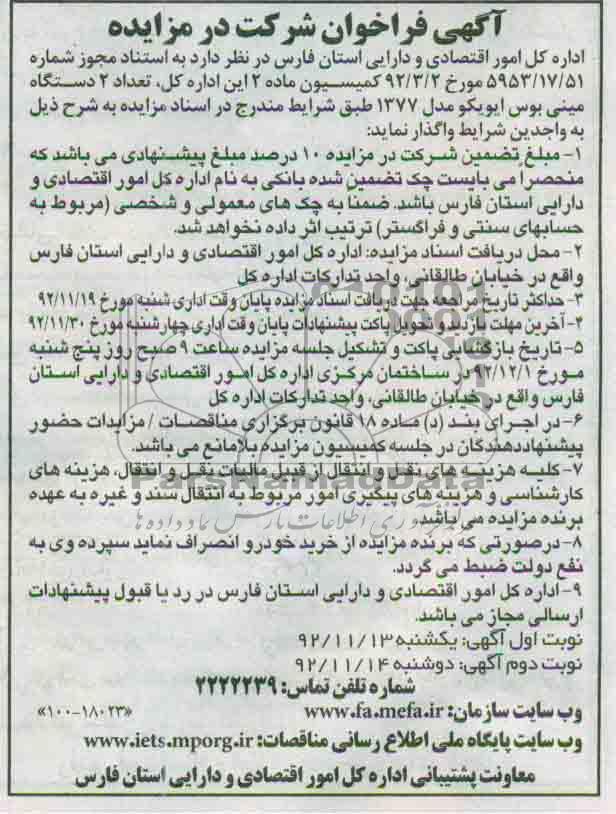 آگهی فراخوان شرکت در مزایده
اداره کل امور اقتصادی و دارایی استان فارس در نظر دارد به استناد مجوز شماره
۵۹۵۳/۱۷/۵۱ مورخ ۹۲/۳/۲ کمیسیون ماده ۲ این اداره کل، تعداد ۲ دستگاه
مینی بوس ایویکو مدل ۱۳۷۷ طبق شرایط مندرج در اسناد مزایده به شرح ذیل
به واجدین شرایط واگذار نماید:
۱- مبلغ تضمین شرکت در مزایده ۱۰ درصد مبلغ پیشنهادی می باشد که
منحصراً می بایست چک تضمین شده بانکی به نام اداره کل امور اقتصادی و
دارایی استان فارس باشد. ضمناً به چک های معمولی و شخصی (مربوط به
حسابهای سنتی و فراگستر) ترتیب اثر داده نخواهد شد.
۲- محل دریافت اسناد مزایده: اداره کل امور اقتصادی و دارایی استان فارس
واقع در خیابان طالقانی، واحد تدارکات اداره کل
۳- حداکثر تاریخ مراجعه جهت دریافت اسناد مزایده پایان وقت اداری شنبه مورخ ۹۲/۱۱/۱۹
۴- آخرین مهلت بازدید و تحویل پاکت پیشنهادات پایان وقت اداری چهارشنبه مورخ ۹۲/۱۱/۳۰
۵- تاریخ بازگشایی پاکت و تشکیل جلسه مزایده ساعت ۹ صبح روز پنج شنبه
مورخ ۹۲/۱۲/۱ در ساختمان مرکزی اداره کل امور اقتصادی و دارایی استان
فارس واقع در خیابان طالقانی، واحد تدارکات اداره کل
۶- در اجرای بند (د) ماده ۱۸ قانون برگزاری مناقصات / مزایدات حضور
پیشنهاددهندگان در جلسه کمیسیون مزایده بلامانع می باشد.
۷- کلیه هزینه های نقل و انتقال از قبیل مالیات نقل و انتقال، هزینه های
کارشناسی و هزینه های پیگیری امور مربوط به انتقال سند و غیره به عهده
برنده مزایده می باشد.
۸- درصورتی که برنده مزایده از خرید خودرو انصراف نماید سپرده وی به
نفع دولت ضبط می گردد.
۹- اداره کل امور اقتصادی و دارایی استان فارس در رد یا قبول پیشنهادات
ارسالی مجاز می باشد.
نوبت اول آگهی: یکشنبه ۹۲/۱۱/۱۳
نوبت دوم آگهی: دوشنبه ۹۲/۱۱/۱۴
شماره تلفن تماس: ۲۲۲۲۲۳۹
وب سایت سازمان: www.fa.mefa.ir «۱۰۰-۱۸۰۲۳»
وب سایت پایگاه ملی اطلاع رسانی مناقصات: www.iets.mporg.ir
معاونت پشتیبانی اداره کل امور اقتصادی و دارایی استان فارس
ParsNamadData